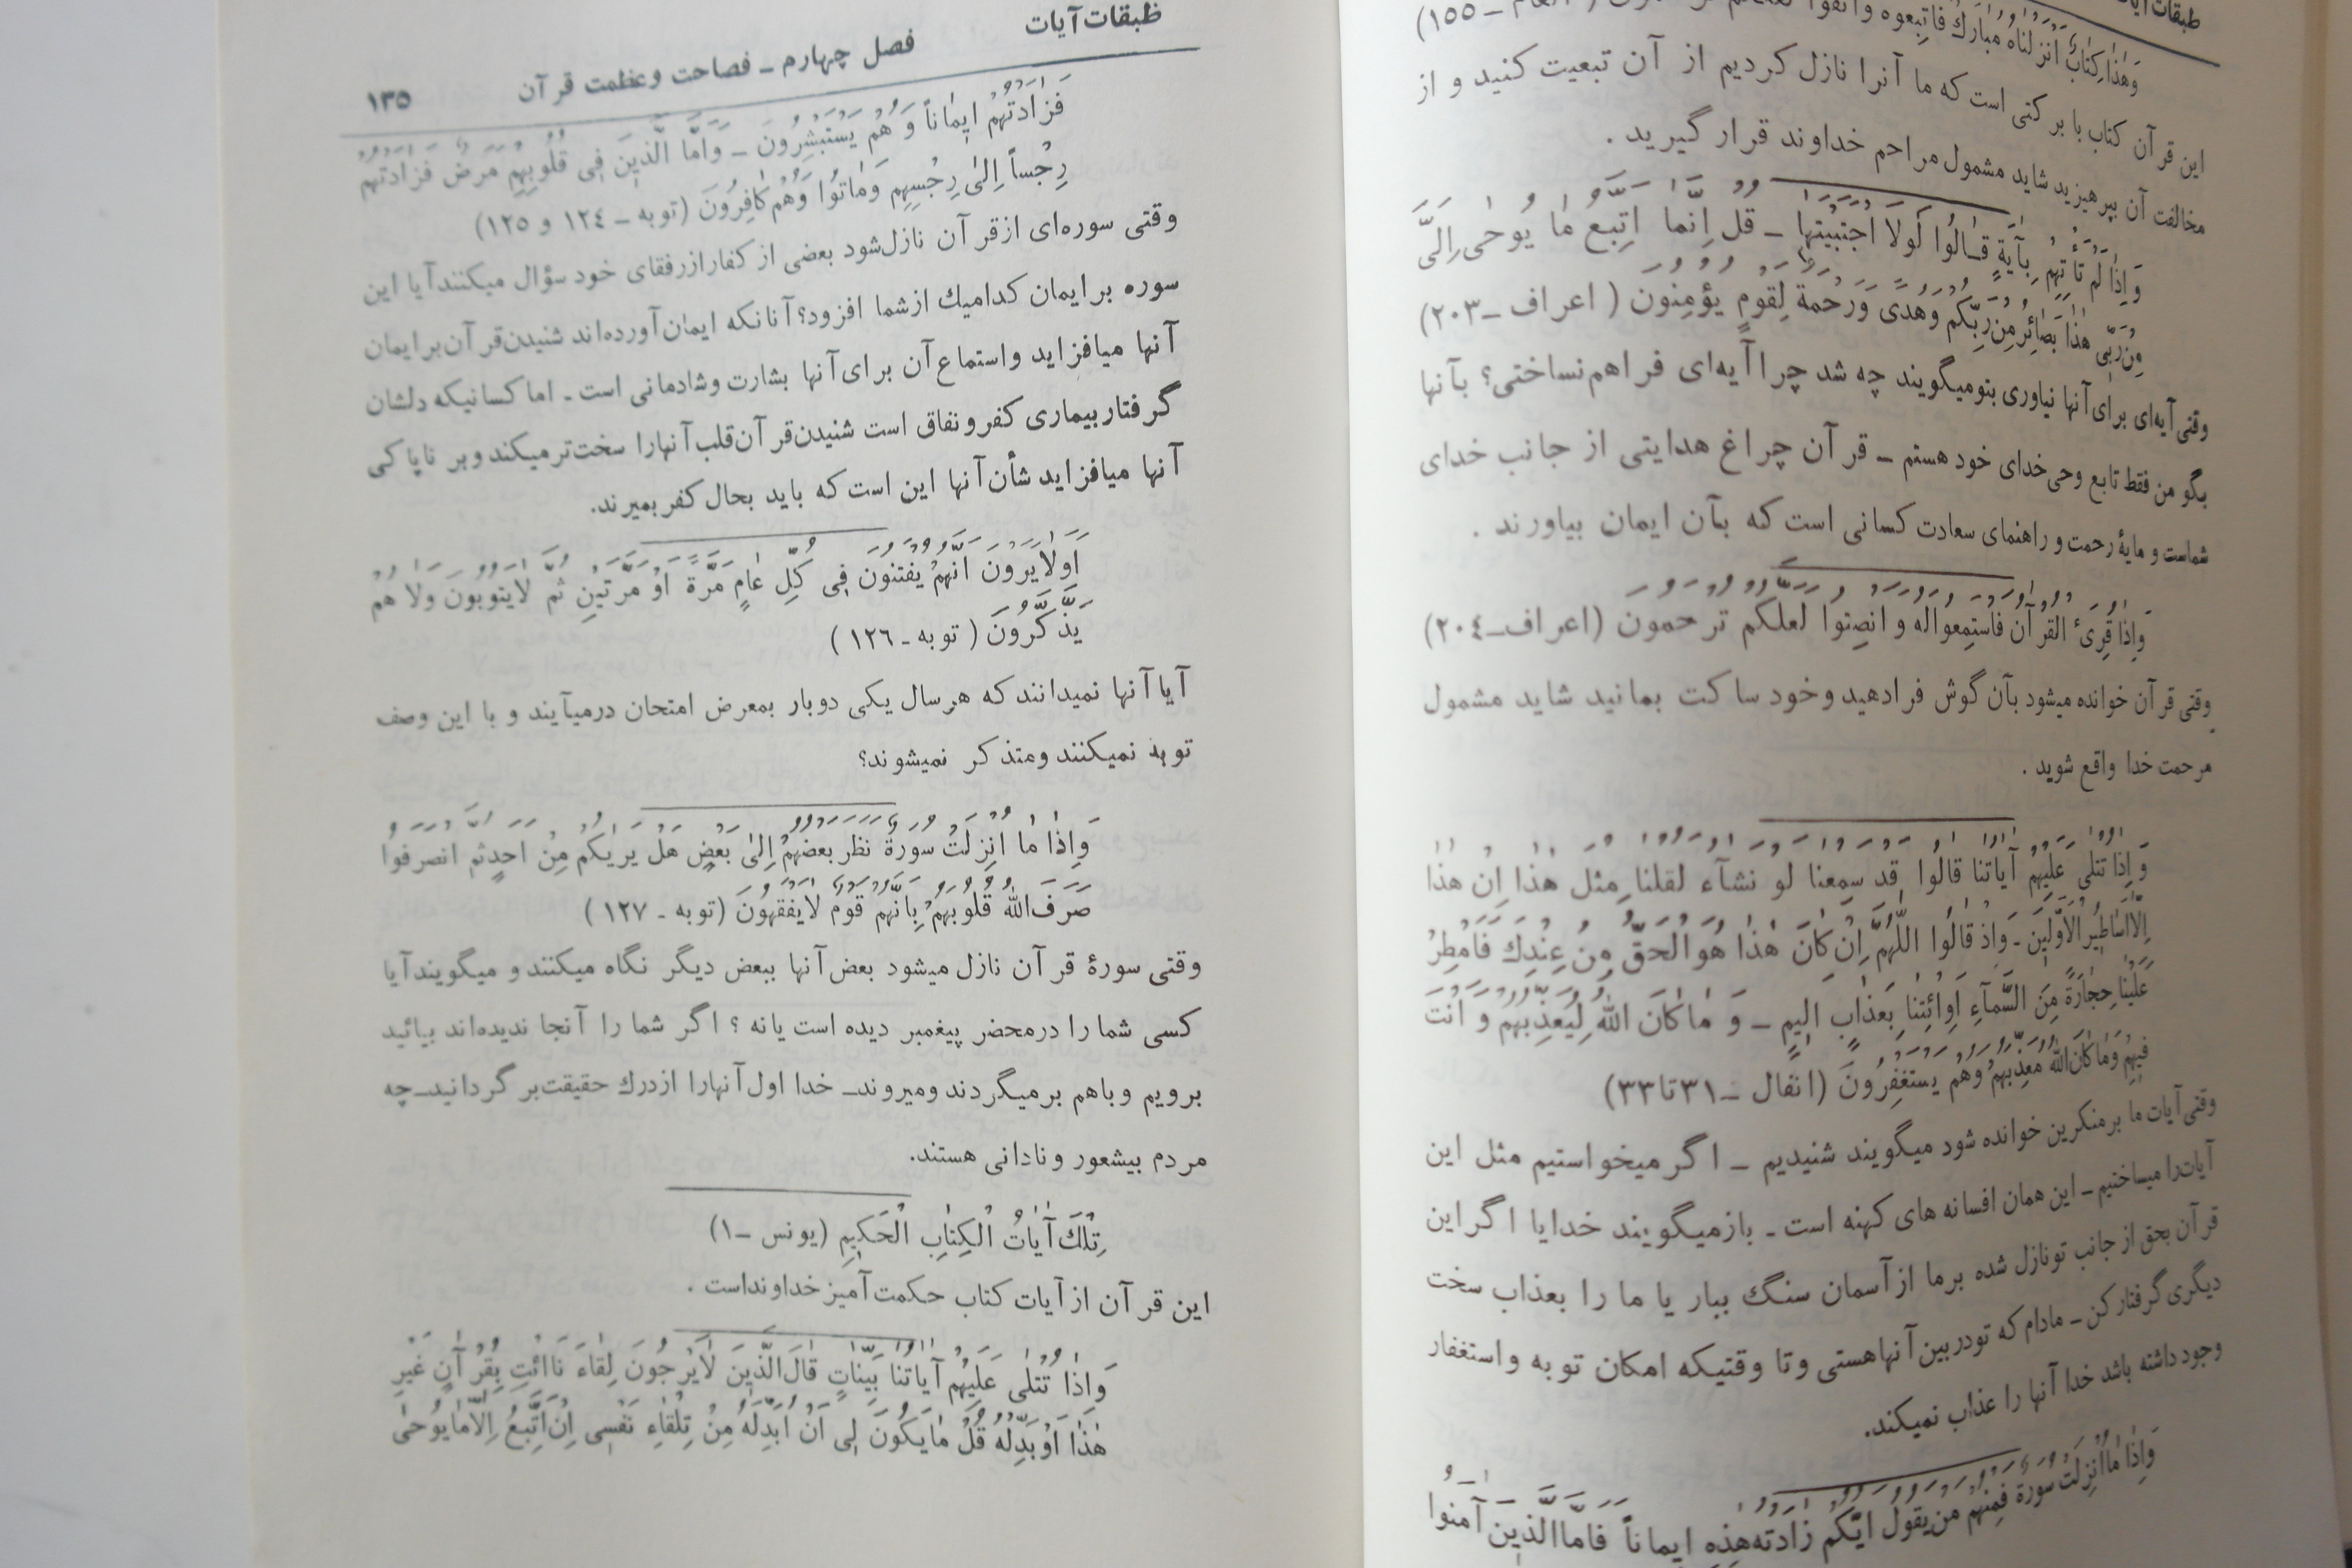 طبقات آیات
وَهٰذا كِتٰابٌ اَنْزَلْنٰاهُ مُبٰارَكٌ فَاتَّبِعُوهُ وَاتَّقُوا ــ ١٥٥)
این قرآن کتاب با برکتی است که ما آنرا نازل کردیم از آن تبعیت کنید و از
مخالفت آن بپرهیزید شاید مشمول مراحم خداوند قرار گیرید .
وَ اِذٰا لَمْ تَأْتِهِمْ بِآيَةٍ قٰالُوا لَولَا اجْتَبَيْتَهٰا ــ قُلْ اِنَّمٰا اَتَّبِعُ مٰا يُوحٰى اِلَىَّ
مِنْ رَبّى هٰذٰا بَصٰائِرُ مِنْ رَبِّكُمْ وَهُدًى وَرَحْمَةٌ لِقَوْمٍ يُؤْمِنُونَ ( اعراف ــ٢٠٣)
وقتی آیه‌ای برای آنها نیاوری بتو میگویند چه شد چرا آیه‌ای فراهم نساختی؟ بآنها
بگو من فقط تابع وحی خدای خود هستم ــ قرآن چراغ هدایتی از جانب خدای
شماست و مایهٔ رحمت و راهنمای سعادت کسانی است که بآن ایمان بیاورند .
وَاِذٰا قُرِىءَ الْقُرْآنُ فَاسْتَمِعُوالَهُ وَ اَنْصِتُوا لَعَلَّكُمْ تُرْحَمُونَ (اعراف ــ٢٠٤)
وقتی قرآن خوانده میشود بآن گوش فرا دهید و خود ساکت بمانید شاید مشمول
مرحمت خدا واقع شوید .
وَ اِذٰا تُتْلٰى عَلَيْهِمْ آيٰاتُنٰا قٰالُوا قَدْ سَمِعْنٰا لَوْ نَشٰآءُ لَقُلْنٰا مِثْلَ هٰذٰا اِنْ هٰذٰا
اِلّٰا اَسٰاطيرُ الْاَوَّلينَ ـ وَاِذْ قٰالُوا اللّٰهُمَّ اِنْ كٰانَ هٰذٰا هُوَ الْحَقَّ مِنْ عِنْدِكَ فَاَمْطِرْ
عَلَيْنٰا حِجٰارَةً مِنَ السَّمٰآءِ اَوِائْتِنٰا بِعَذٰابٍ اَليمٍ ــ وَ مٰا كٰانَ اللّٰهُ لِيُعَذِّبَهُمْ وَ اَنْتَ
فيهِمْ وَمٰا كٰانَ اللّٰهُ مُعَذِّبَهُمْ وَهُمْ يَسْتَغْفِرُونَ (انفال ــ٣١تا٣٣)
وقتی آیات ما بر منکرین خوانده شود میگویند شنیدیم ــ اگر میخواستیم مثل این
آیات‌را میساختیم ــ این همان افسانه های کهنه است ـ باز میگویند خدایا اگر این
قرآن بحق از جانب تو نازل شده بر ما از آسمان سنگ ببار یا ما را بعذاب سخت
دیگری گرفتار کن ــ مادام که تو در بین آنها هستی و تا وقتیکه امکان توبه و استغفار
وجود داشته باشد خدا آنها را عذاب نمیکند.
وَاِذٰا مٰا اُنْزِلَتْ سُورَةٌ فَمِنْهُمْ مَنْ يَقُولُ اَيُّكُمْ زٰادَتْهُ هٰذِهِ ايمٰاناً فَاَمَّا الَّذينَ آمَنُوا
طبقات آیات
فصل چهارم ــ فصاحت و عظمت قرآن
۱۳۵
فَزٰادَتْهُمْ ايمٰاناً وَ هُمْ يَسْتَبْشِرُونَ ــ وَاَمَّا الَّذينَ فى قُلُوبِهِمْ مَرَضٌ فَزٰادَتْهُمْ
رِجْساً اِلىٰ رِجْسِهِمْ وَمٰاتُوا وَهُمْ كٰافِرُونَ (توبه ــ ١٢٤ و ١٢٥)
وقتی سوره‌ای از قرآن نازل شود بعضی از کفار از رفقای خود سؤال میکنند آیا این
سوره بر ایمان کدامیك از شما افزود؟ آنانکه ایمان آورده‌اند شنیدن قرآن بر ایمان
آنها میافزاید و استماع آن برای آنها بشارت و شادمانی است ـ اما کسانیکه دلشان
گرفتار بیماری کفر و نفاق است شنیدن قرآن قلب آنهارا سخت‌تر میکند و بر ناپاکی
آنها میافزاید شأن آنها این است که باید بحال کفر بمیرند.
اَوَلٰا يَرَوْنَ اَنَّهُمْ يُفْتَنُونَ فى كُلِّ عٰامٍ مَرَّةً اَوْ مَرَّتَيْنِ ثُمَّ لٰايَتُوبُونَ وَلٰا هُمْ
يَذَّكَّرُونَ ( توبه ـ ١٢٦ )
آیا آنها نمیدانند که هر سال یکی دو بار بمعرض امتحان درمیآیند و با این وصف
توبه نمیکنند و متذکر نمیشوند؟
وَاِذٰا مٰا اُنْزِلَتْ سُورَةٌ نَظَرَ بَعْضُهُمْ اِلىٰ بَعْضٍ هَلْ يَرٰيكُمْ مِنْ اَحَدٍ ثُمَّ انْصَرَفُوا
صَرَفَ اللّٰهُ قُلُوبَهُمْ بِاَنَّهُمْ قَوْمٌ لٰايَفْقَهُونَ (توبه ـ ١٢٧ )
وقتی سورهٔ قرآن نازل میشود بعض آنها ببعض دیگر نگاه میکنند و میگویند آیا
کسی شما را در محضر پیغمبر دیده است یانه ؟ اگر شما را آنجا ندیده‌اند بیائید
برویم و باهم برمیگردند و میروند ــ خدا اول آنهارا از درك حقیقت برگردانید ــ چه
مردم بیشعور و نادانی هستند.
تِلْكَ آيٰاتُ الْكِتٰابِ الْحَكيمِ (یونس ــ١)
این قرآن از آیات کتاب حکمت آمیز خداونداست .
وَاِذٰا تُتْلٰى عَلَيْهِمْ آيٰاتُنٰا بَيِّنٰاتٍ قٰالَ الَّذينَ لٰايَرْجُونَ لِقٰاءَ نَاائْتِ بِقُرْآنٍ غَيْرِ
هٰذٰا اَوْ بَدِّلْهُ قُلْ مٰايَكُونُ لى اَنْ اُبَدِّلَهُ مِنْ تِلْقٰاءِ نَفْسى اِنْ اَتَّبِعُ اِلّٰا مٰا يُوحٰى